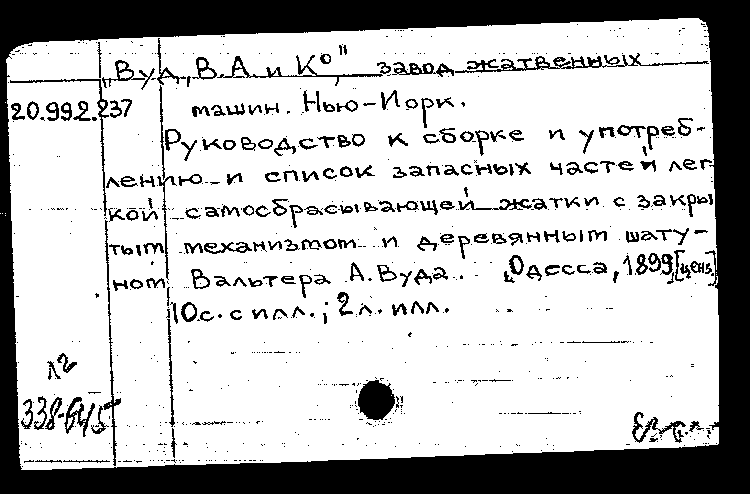 „Вуд, В.А. и К°", завод жатвенных
20.99.2.237 машин. Нью-Йорк.
Руководство к сборке и употреб-
лению и список запасных частей лег
кой самосбрасывающей жатки с закры
тым механизмом и деревянным шату-
ном Вальтера А. Вуда. Одесса, 1899 [ценз]
10с. с илл.; 2 л. илл.
л2
338-64/5